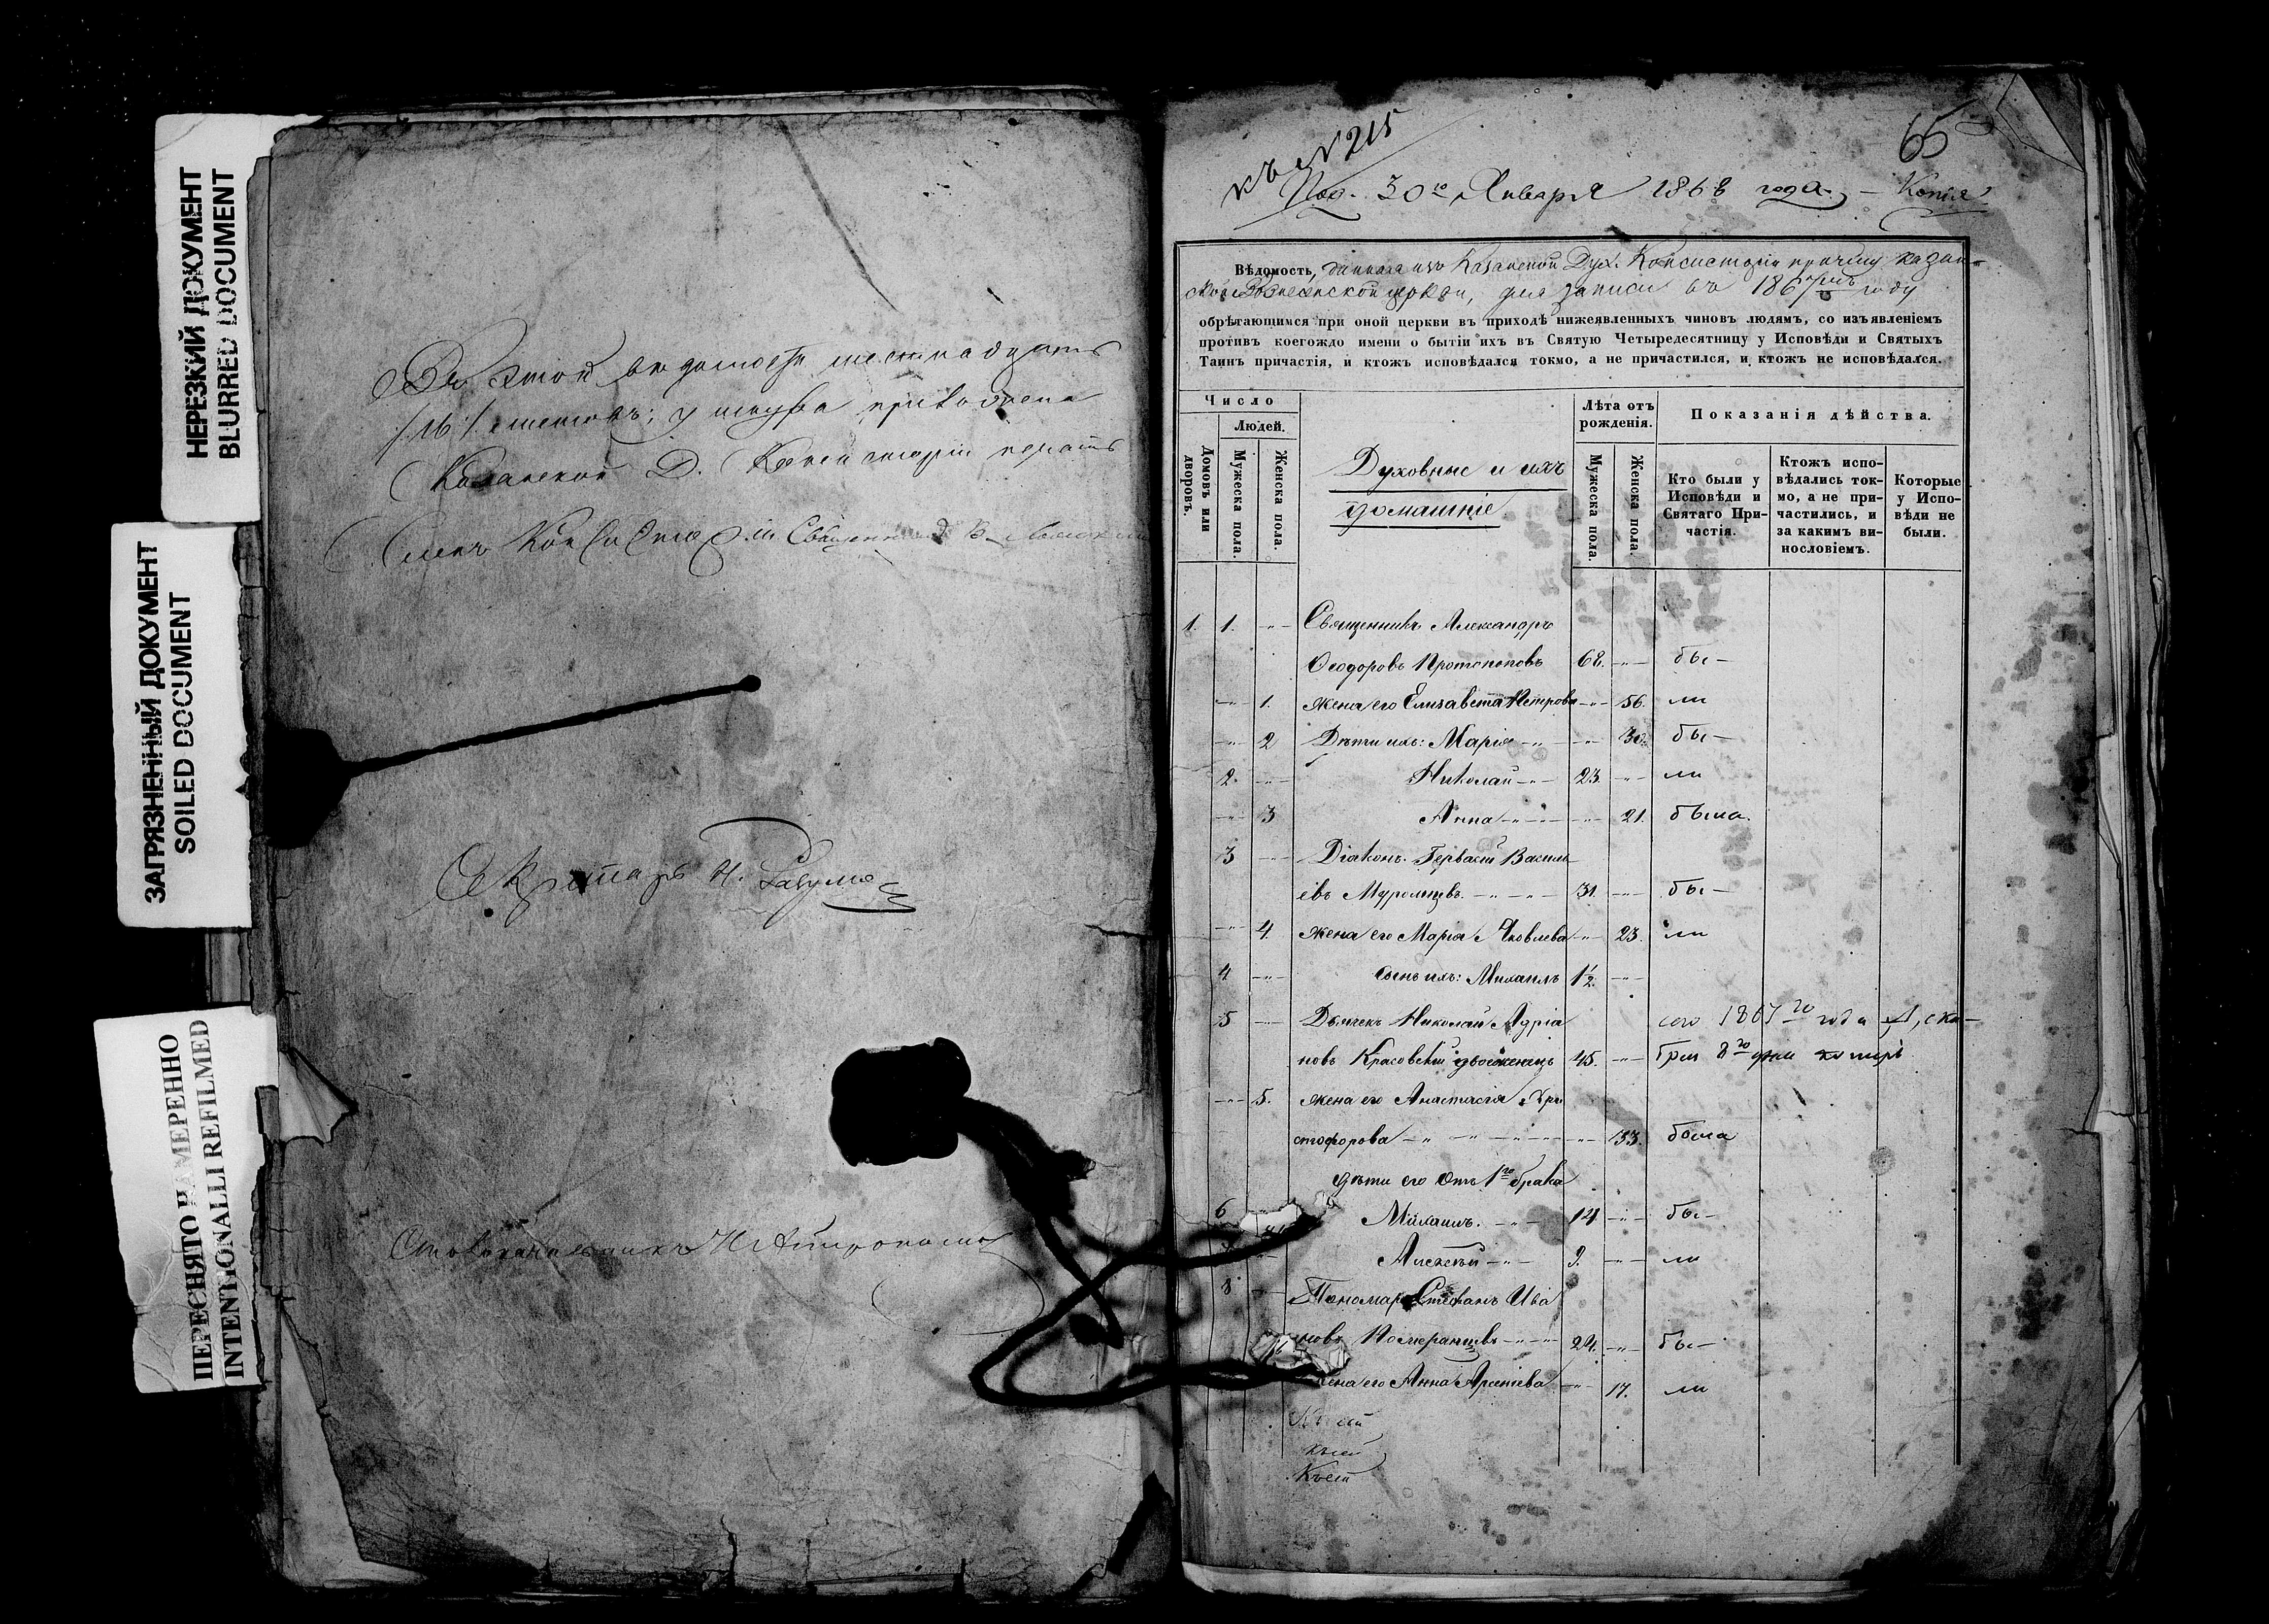 НЕРЕЗКИЙ ДОКУМЕНТ
BLURRED DOCUMENT
ЗАГРЯЗНЕННЫЙ ДОКУМЕНТ
SOILED DOCUMENT
ПЕРЕСНЯТО НАМЕРЕННО
INTENTIONALLI REFILMED
Въ этой ведомости шестнадцать
/16/ листовъ; у шнура приложена
Казанской Д. Консисторіи печать
Членъ Консисторіи Священникъ
Секретарь И.
Столоначальникъ
къ № 215
65
Под. 30го Января 1868 года. – Копія
Вѣдомость, данная изъ Казанской Дух. Консисторіи причту Казан-
ской Вознесенской церкви, для записи въ 1867 году
обрѣтающимся при оной церкви въ приходѣ нижеявленныхъ чиновъ людямъ, со изъявленіемъ
противъ коегождо имени о бытіи ихъ въ Святую Четыредесятницу у Исповѣди и Святыхъ
Таинъ причастія, и ктожъ исповѣдался токмо, а не причастился, и ктожъ не исповѣдался.
Число
Людей.
Домовъ или дворовъ.
Мужеска пола.
Женска пола.
Духовные и ихъ
домашніе
Лѣта отъ рожденія.
Мужеска пола.
Женска пола.
Показанія дѣйства.
Кто были у Исповѣди и Святаго Причастія.
Ктожъ исповѣдались токмо, а не причастились, и за какимъ винословіемъ.
Которые у Исповѣди не были.
1. 1. -"- Священникъ Александръ
Ѳеодоровъ Протопоповъ 68. -"- бы-
-"- 1. жена его Елизавета Петрова -"- 56. ли
-"- 2 Дѣти ихъ: Марія -"- -"- 30. бы-
2. -"- Николай -"- 23. -"- ли
-"- 3 Анна -"- -"- 21. была.
3 -"- Діаконъ Гервасій Василь
евъ Муромцевъ. -"- -"- 31. -"- бы-
-"- 4. жена его Марія Яковлева -"- 23. ли
4 -"- сынъ ихъ: Михаилъ 1½. -"-
5 -"- Дьячекъ Николай Адріа
новъ Красовскій двоеженецъ 45. -"-
сего 1867го года Дека-
бря 8го дня померъ
-"- 5. жена его Анастасія Хри
стофорова -"- -"- -"- -"- 33. была
дѣти его отъ 1го брака
6 Михаилъ. -"- 14 -"- бы-
Алексѣй -"- 9. -"- ли
8 -"- Пономарь Стефанъ Ива
новъ Померанцевъ -"- -"- 24. -"- бы-
жена его Анна Арсеніева -"- 17. ли